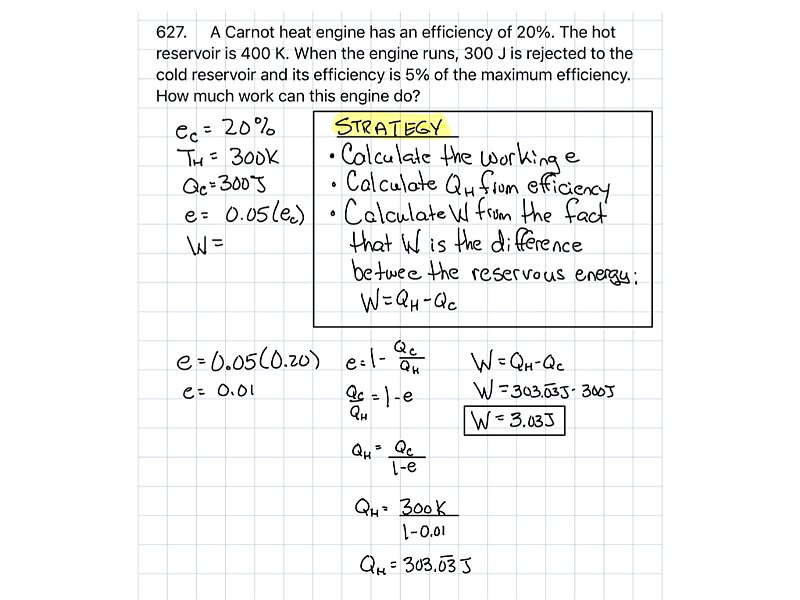 627. A Carnot heat engine has an efficiency of 20%. The hot
reservoir is 400 K. When the engine runs, 300 J is rejected to the
cold reservoir and its efficiency is 5% of the maximum efficiency.
How much work can this engine do?
e_c = 20%
T_H = 300K
Q_c = 300J
e = 0.05(e_c)
W =
STRATEGY
• Calculate the working e
• Calculate Q_H from efficiency
• Calculate W from the fact
that W is the difference
betwee the reservous energy:
W = Q_H - Q_C
e = 0.05(0.20)
e = 0.01
e = 1 - Q_c/Q_H
Q_c/Q_H = 1 - e
Q_H = Q_c/1-e
Q_H = 300K/1-0.01
Q_H = 303.0̅3̅ J
W = Q_H - Q_C
W = 303.0̅3̅J - 300J
W = 3.03J